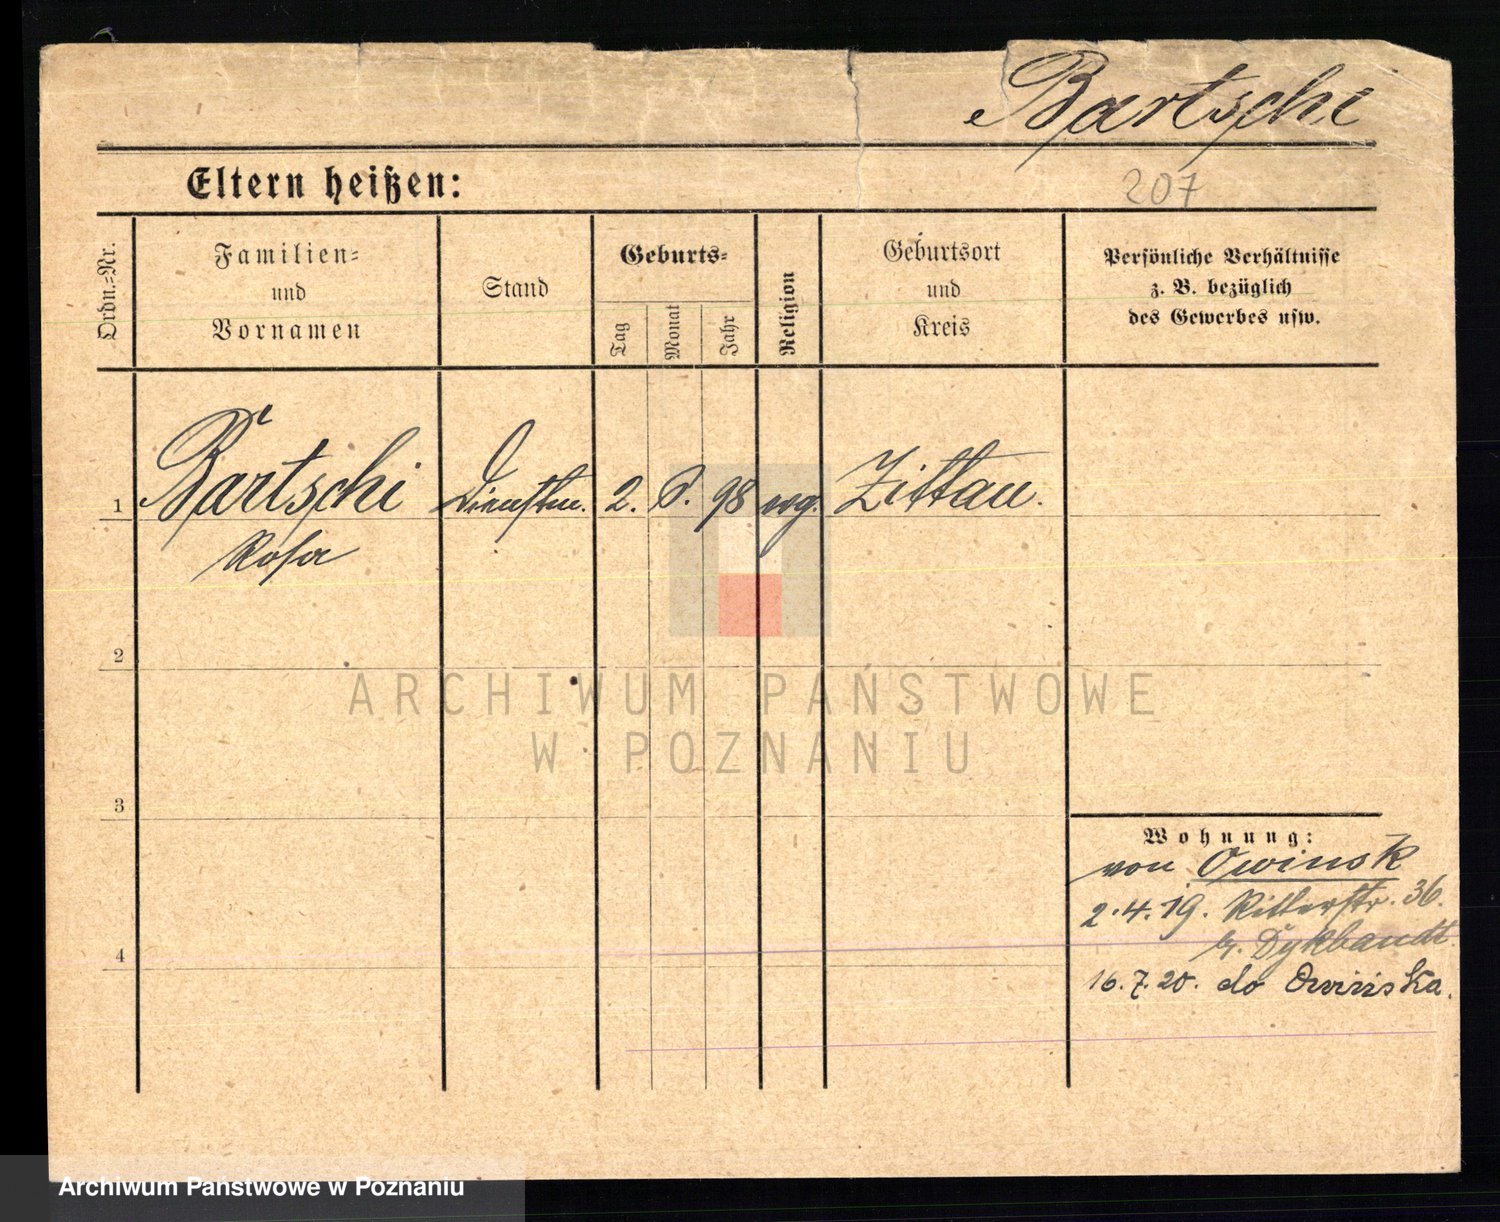 Bartschi
Eltern heißen:
207
Ordn.-Nr.
Familien-
und
Vornamen
Stand
Geburts-
Tag
Monat
Jahr
Religion
Geburtsort
und
Kreis
Persönliche Verhältnisse
z. B. bezüglich
des Gewerbes usw.
1 Bartschi Dienstm. 2. 98 evg. Zittau.
Rosa
2
ARCHIWUM PAŃSTWOWE
W POZNANIU
3
Wohnung:
von Owinsk
2.4.19. Ritterstr. 36.
4
16.7.20. do Owińska.
Archiwum Państwowe w Poznaniu